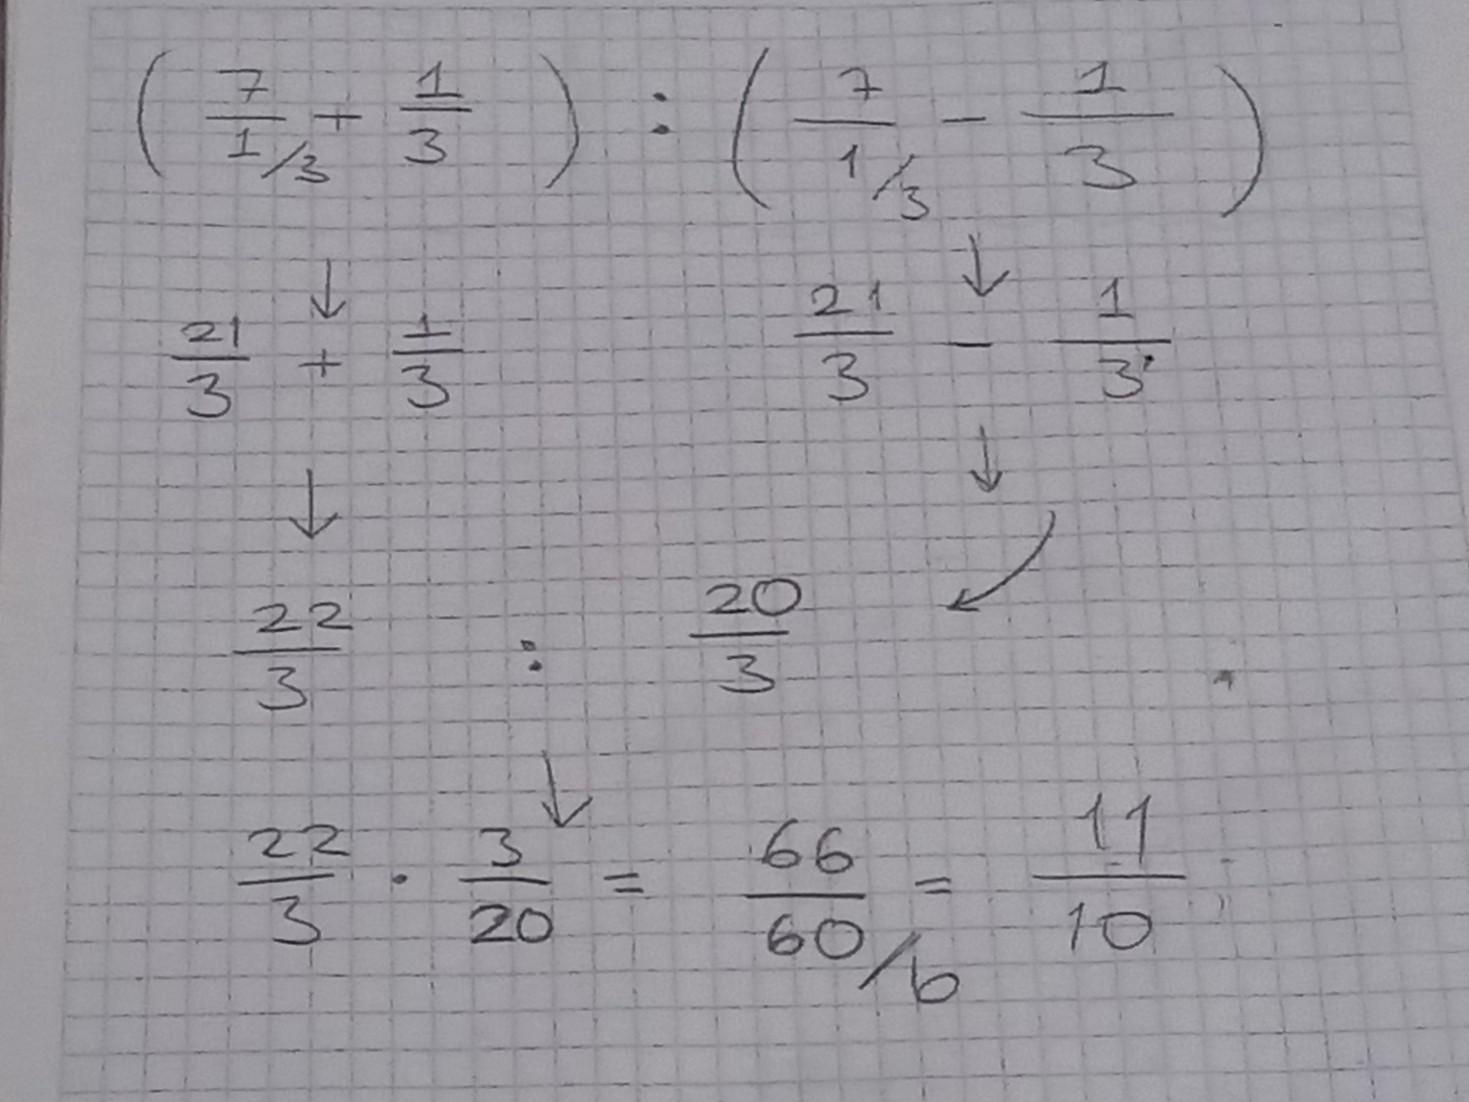 ( 7/1 /3 + 1/3 ) : ( 7/1 /3 - 1/3 )
↓ ↓
21/3 + 1/3 21/3 - 1/3
↓ ↓
22/3 : 20/3
↓
22/3 · 3/20 = 66/60 /6 = 11/10